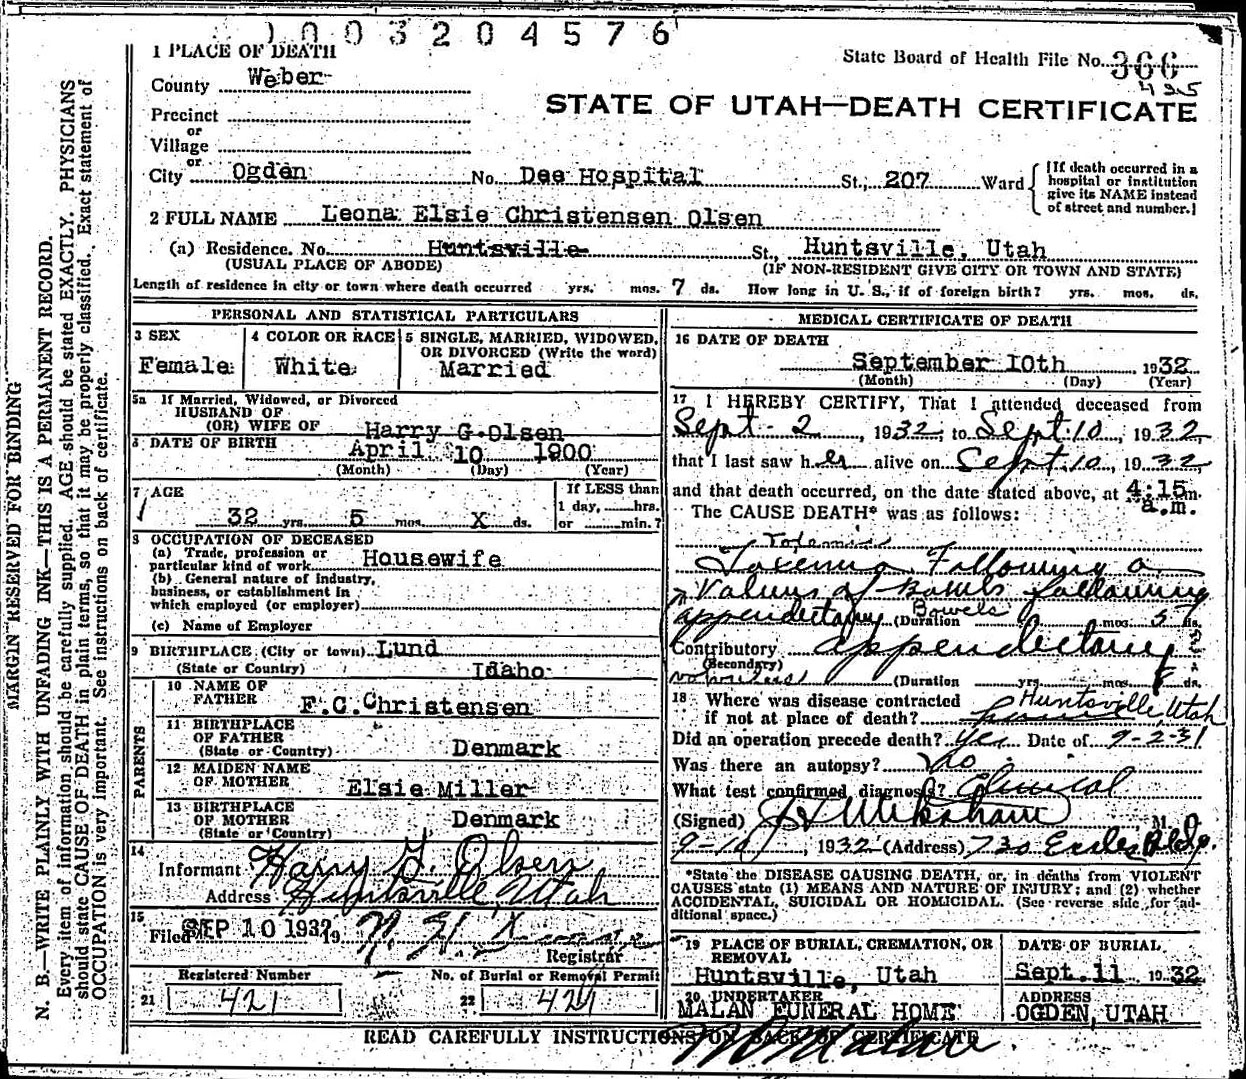 1003204576
1 PLACE OF DEATH
State Board of Health File No. 366
425
County Weber
STATE OF UTAH—DEATH CERTIFICATE
Precinct
or
Village
or
City Ogden No. Dee Hospital St., 207 Ward
[If death occurred in a hospital or institution give its NAME instead of street and number.]
2 FULL NAME Leona Elsie Christensen Olsen
(a) Residence. No. Huntsville St., Huntsville, Utah
(USUAL PLACE OF ABODE) (IF NON-RESIDENT GIVE CITY OR TOWN AND STATE)
Length of residence in city or town where death occurred yrs. mos. 7 ds. How long in U. S., if of foreign birth? yrs. mos. ds.
PERSONAL AND STATISTICAL PARTICULARS
3 SEX
Female
4 COLOR OR RACE
White
5 SINGLE, MARRIED, WIDOWED,
OR DIVORCED (Write the word)
Married
5a If Married, Widowed, or Divorced
HUSBAND OF
(OR) WIFE OF Harry G. Olsen
6 DATE OF BIRTH April 10 1900
(Month) (Day) (Year)
7 AGE
32 yrs. 5 mos. X ds.
If LESS than
1 day, hrs.
or min.?
8 OCCUPATION OF DECEASED
(a) Trade, profession or
particular kind of work Housewife
(b) General nature of industry,
business, or establishment in
which employed (or employer)
(c) Name of Employer
9 BIRTHPLACE (City or town) Lund
(State or Country) Idaho
PARENTS
10 NAME OF
FATHER F.C.Christensen
11 BIRTHPLACE
OF FATHER
(State or Country) Denmark
12 MAIDEN NAME
OF MOTHER Elsie Miller
13 BIRTHPLACE
OF MOTHER
(State or Country) Denmark
14
Informant Harry G. Olsen
Address Huntsville, Utah
15
Filed SEP 10 1932 19
Registrar
Registered Number
21 421
No. of Burial or Removal Permit
22 421
MEDICAL CERTIFICATE OF DEATH
16 DATE OF DEATH
September 10th 1932
(Month) (Day) (Year)
17 I HEREBY CERTIFY, That I attended deceased from
Sept. 2, 1932, to Sept. 10, 1932
that I last saw her alive on Sept. 10, 1932
and that death occurred, on the date stated above, at 4:15 m.
a.m.
The CAUSE DEATH* was as follows:
Toxemia Following a
Volvulus of Bowels following
Bowels
appendectomy (Duration mos. 5 ds.
Contributory appendectomy
(Secondary)
volvulus (Duration yrs. mos. 8 ds.
18 Where was disease contracted
if not at place of death? Huntsville Utah
Did an operation precede death? yes Date of 9-2-31
Was there an autopsy? No
What test confirmed diagnosis? Clinical
(Signed) M. D.
9-10, 1932 (Address) 730 Eccles Bldg.
*State the DISEASE CAUSING DEATH, or, in deaths from VIOLENT
CAUSES state (1) MEANS AND NATURE OF INJURY; and (2) whether
ACCIDENTAL, SUICIDAL OR HOMICIDAL. (See reverse side for ad-
ditional space.)
19 PLACE OF BURIAL, CREMATION, OR
REMOVAL
Huntsville, Utah
DATE OF BURIAL
Sept. 11 1932
20 UNDERTAKER
MALAN FUNERAL HOME
ADDRESS
OGDEN, UTAH
READ CAREFULLY INSTRUCTIONS ON BACK OF CERTIFICATE
MARGIN RESERVED FOR BINDING
N. B.—WRITE PLAINLY WITH UNFADING INK—THIS IS A PERMANENT RECORD.
Every item of information should be carefully supplied. AGE should be stated EXACTLY. PHYSICIANS
should state CAUSE OF DEATH in plain terms, so that it may be properly classified. Exact statement of
OCCUPATION is very important. See instructions on back of certificate.